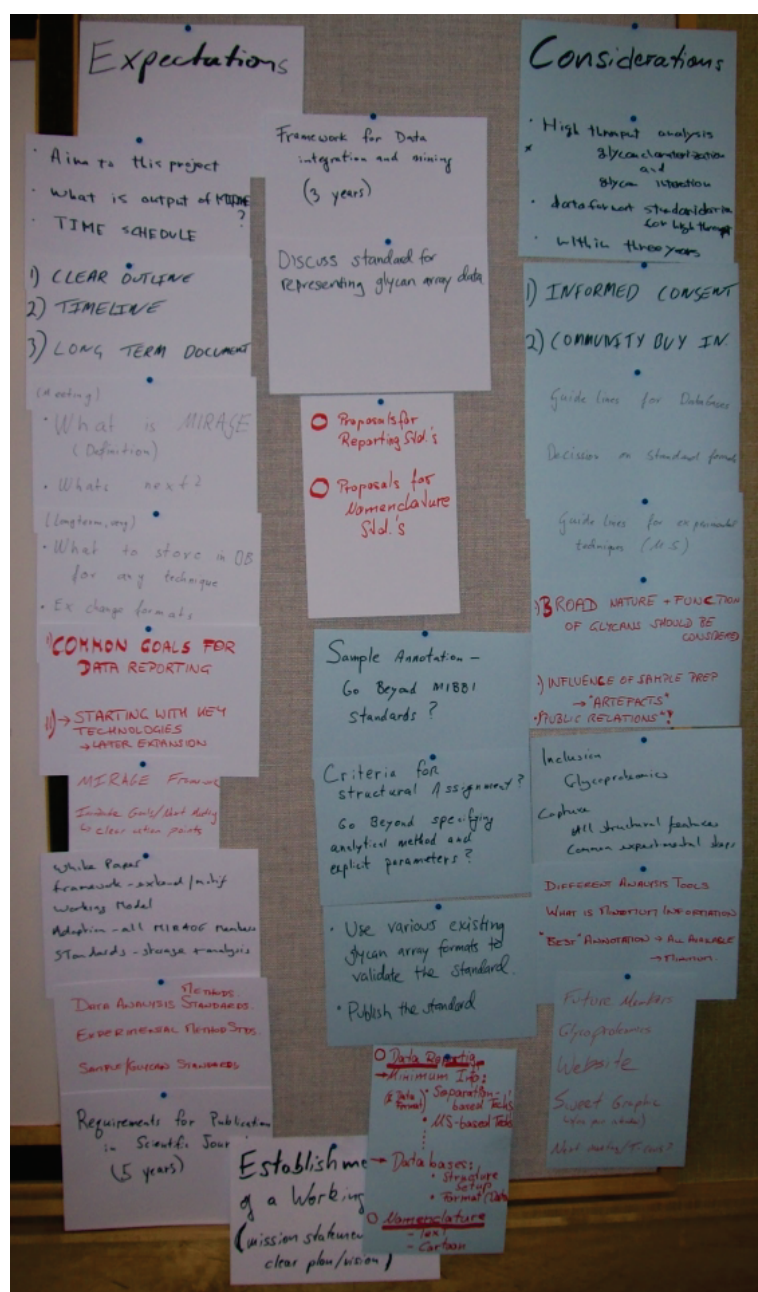 Expectations
· Aim to this project
· What is output of MIRAGE ?
· TIME SCHEDULE
1) CLEAR OUTLINE
2) TIMELINE
3) LONG TERM DOCUMENT
(Meeting)
· What is MIRAGE
(Definition)
· Whats next?
(longterm,
· What to store in DB
for any technique
· Exchange formats
I) COMMON GOALS FOR
DATA REPORTING
II) → STARTING WITH KEY
TECHNOLOGIES
→ LATER EXPANSION
MIRAGE
clear action points
White Paper
framework - extend/
Working Model
Adoption - all MIRAGE Members
STandards - storage + analysis
METHODS
DATA ANALYSIS STANDARDS.
EXPERIMENTAL METHOD STDS.
SAMPLE/GLYCAN STANDARDS
Requirements for Publication
in Scientific Jour
(5 years)
Framework for Data
integration and mining
(3 years)
DISCUSS standard for
representing glycan array data
O Proposals for
Reporting Std.'s
O Proposals for
Nomenclature
Std.'s
Sample Annotation -
Go Beyond MIBBI
Standards ?
Criteria for
structural Assignment ?
Go Beyond specifying
analytical method and
explicit parameters ?
· Use various existing
glycan array formats to
validate the standard.
· Publish the standard
O Data Reporting
→ Minimum Info:
(& Data Format)
· Separation-
based Techs
· MS-based Techs
→ Databases:
· Structure
Setup
· Format (Data
O Nomenclature
- Text
- Cartoon
Establishme
of a Working
(mission stateme
clear plan/vision)
Considerations
· High thruput analysis
glycan
and
glycan
· data format
for high thruput
· within three years
1) INFORMED CONSENT
2) COMMUNITY BUY IN.
Guide lines for Databases
Decission on standard formats
Guide lines for experimental
techniques (M.S)
) BROAD NATURE + FUNCTION
OF GLYCANS SHOULD BE
CONSIDERED
) INFLUENCE OF SAMPLE PREP
→ "ARTEFACTS"
· "PUBLIC RELATIONS"!
Inclusion
Glycoproteomics
Capture
All structural features
Common experimental steps
DIFFERENT ANALYSIS TOOLS
WHAT IS MINIMUM INFORMATION
"BEST" ANNOTATION → ALL AVAILABLE
→ MINIMUM.
Future Members
Glycoproteomics
Website
Sweet Graphic
Next meeting/T-cons?